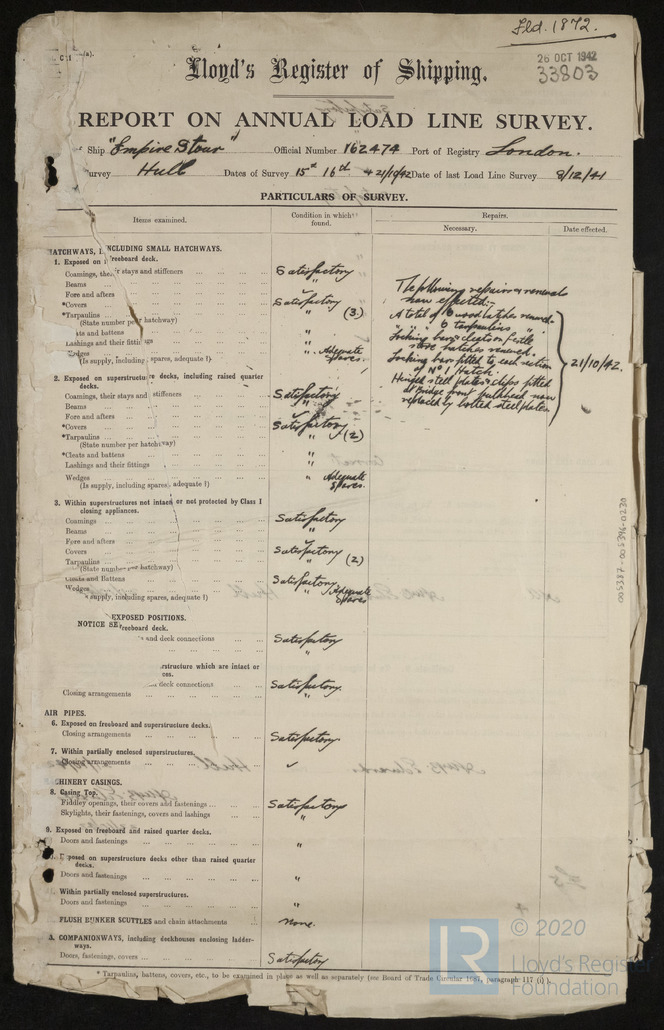 Fld. 1872.
26 OCT 1942
33803
Lloyd's Register of Shipping.
REPORT ON ANNUAL LOAD LINE SURVEY.
Ship "Empire Stour" Official Number 162474 Port of Registry London.
urvey Hull Dates of Survey 15th 16th & 21/10/42 Date of last Load Line Survey 8/12/41
PARTICULARS OF SURVEY.
Items examined. Condition in which found. Repairs.
Necessary. Date effected.
HATCHWAYS, INCLUDING SMALL HATCHWAYS.
1. Exposed on freeboard deck.
Coamings, their stays and stiffeners Satisfactory
Beams "
Fore and afters
*Covers Satisfactory
*Tarpaulins " (3)
(State number per hatchway)
ats and battens "
Lashings and their fittings "
Wedges " Adequate spares.
(Is supply, including spares, adequate?)
The following repairs & renewals
now effected:-
A total of 6 wood hatches renewed.
" 6 tarpaulins "
Locking bars & cleats on Fcstle
store hatches renewed.
Locking bars fitted to each section
of No 1 Hatch.
Hinged steel plates & clips fitted
at Bridge front bulkhead now
replaced by bolted steel plates.
21/10/42.
2. Exposed on superstructure decks, including raised quarter
deck.
Coamings, their stays and stiffeners Satisfactory
Beams "
Fore and afters
*Covers Satisfactory
*Tarpaulins " (2)
(State number per hatchway)
*Cleats and battens "
Lashings and their fittings "
Wedges " Adequate
(Is supply, including spares, adequate?) spares.
3. Within superstructures not intact or not protected by Class I
closing appliances.
Coamings Satisfactory
Beams "
Fore and afters
Covers Satisfactory
Tarpaulins " (2)
(State number per hatchway)
Cleats and Battens Satisfactory
Wedges " Adequate
supply, including spares, adequate?) spares
EXPOSED POSITIONS.
NOTICE SE
freeboard deck.
and deck connections Satisfactory
"
rstructure which are intact or
ces.
deck connections Satisfactory.
Closing arrangements "
AIR PIPES.
6. Exposed on freeboard and superstructure decks.
Closing arrangements Satisfactory
7. Within partially enclosed superstructures.
Closing arrangements
CHINERY CASINGS.
8. Casing Top.
Fiddley openings, their covers and fastenings Satisfactory
Skylights, their fastenings, covers and lashings "
9. Exposed on freeboard and raised quarter decks.
Doors and fastenings "
Exposed on superstructure decks other than raised quarter
decks.
Doors and fastenings "
Within partially enclosed superstructures.
Doors and fastenings "
FLUSH BUNKER SCUTTLES and chain attachments None.
COMPANIONWAYS, including deckhouses enclosing ladder-
ways.
Doors, fastenings, covers Satisfactory
* Tarpaulins, battens, covers, etc., to be examined in place as well as separately (see Board of Trade Circular 1687, paragraph 117 (i)).
005387-005396-0230
LR
© 2020
Lloyd's Register
Foundation